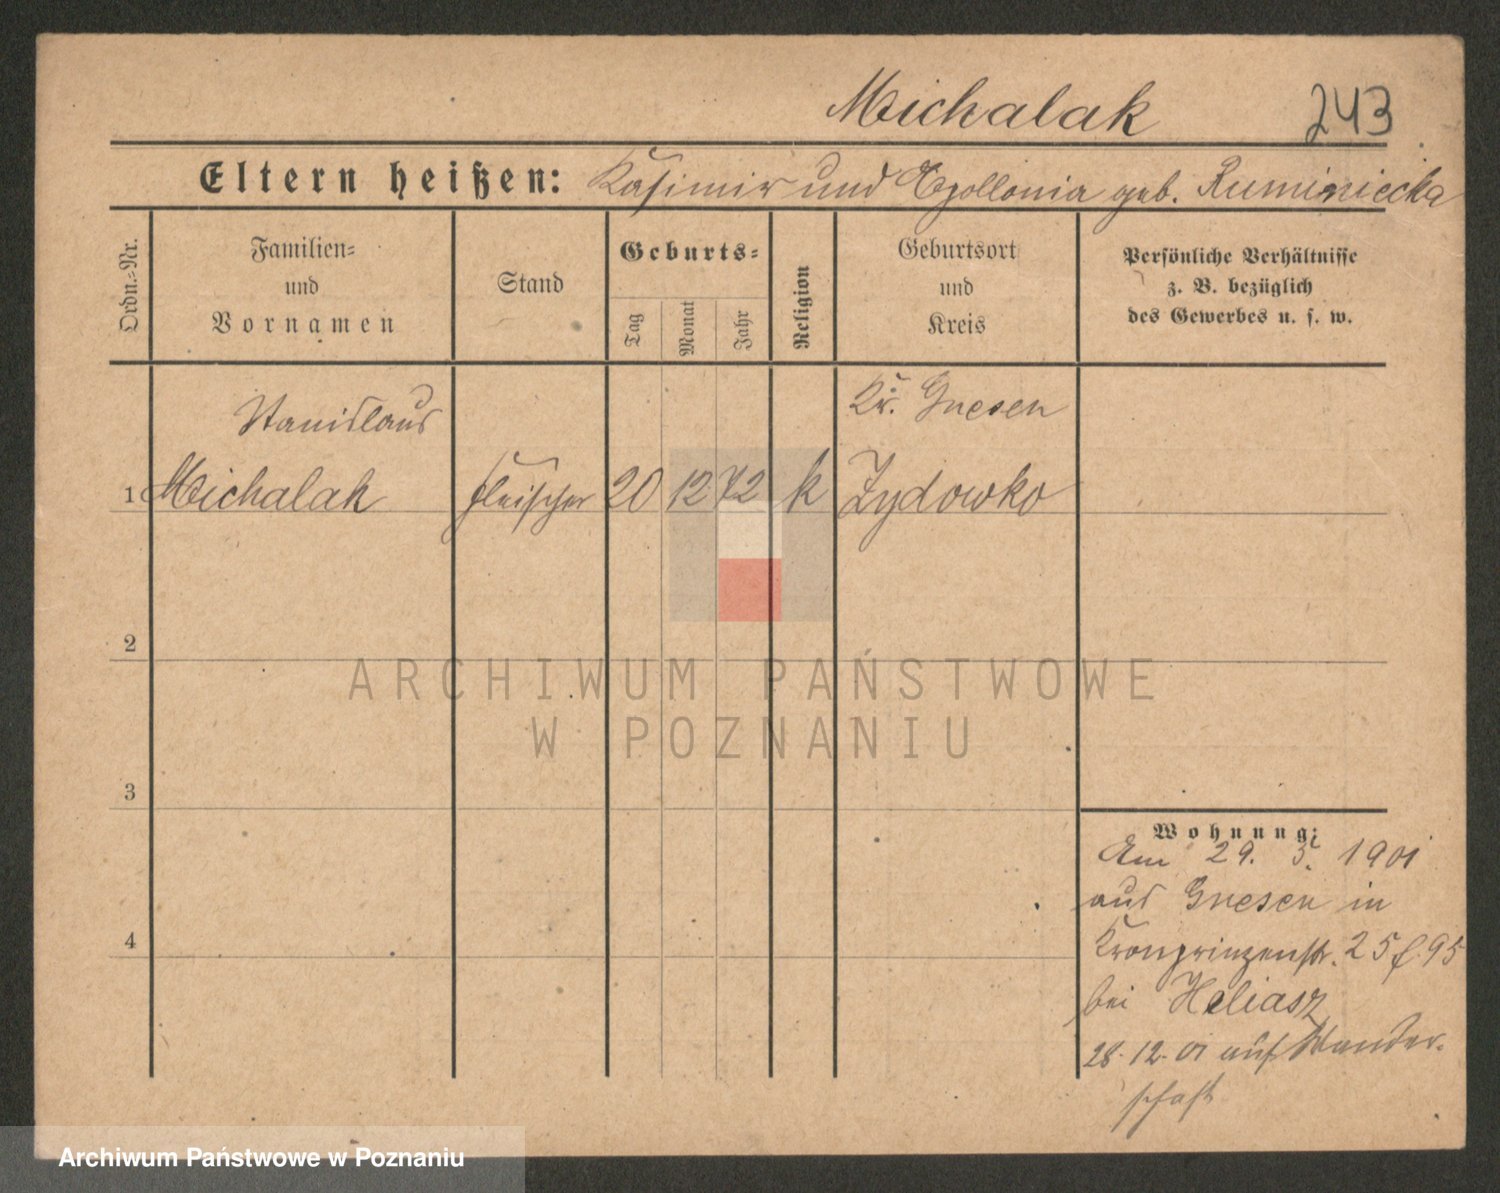 Michalak 243
Eltern heißen: Kasimir und Apollonia geb. Ruminiecka
Ordn.-Nr.
Familien-
und
Vornamen
Stand
Geburts-
Tag
Monat
Jahr
Religion
Geburtsort
und
Kreis
Persönliche Verhältnisse
z. B. bezüglich
des Gewerbes u. s. w.
Stanislaus Kr. Gnesen
1 Michalak Fleischer 20 12 72 k Zydowko
2
3
4
Wohnung:
Am 29. 5. 1901
aus Gnesen in
Kronprinzenstr. 25 f. 95
bei Heliasz
28. 12. 01 auf Wander-
schaft
ARCHIWUM PAŃSTWOWE
W POZNANIU
Archiwum Państwowe w Poznaniu